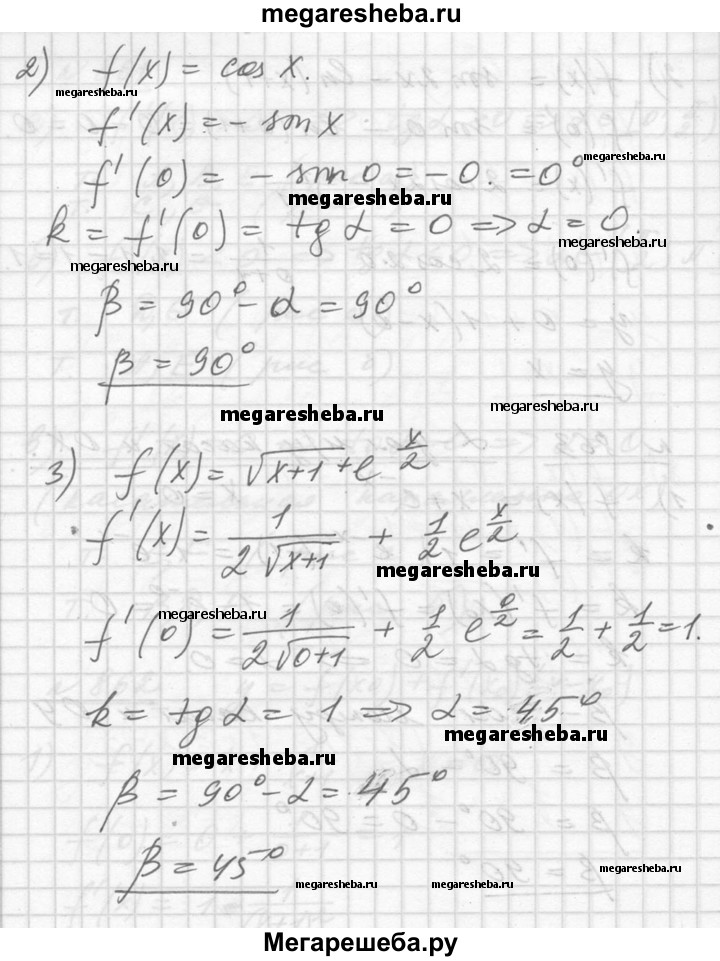 megaresheba.ru
2) f(x) = cos x.
megaresheba.ru
f'(x) = - sin x
megaresheba.ru
f'(0) = - sin 0 = -0. = 0°
megaresheba.ru
k = f'(0) = tg α = 0 => α = 0.
megaresheba.ru
megaresheba.ru
β = 90° - α = 90°
β = 90°
megaresheba.ru
megaresheba.ru
3) f(x) = √(x+1) + e^(x/2)
f'(x) = 1/(2√(x+1)) + 1/2 e^(x/2)
megaresheba.ru
megaresheba.ru
f'(0) = 1/(2√(0+1)) + 1/2 e^(0/2) = 1/2 + 1/2 = 1.
k = tg α = 1 => α = 45°
megaresheba.ru
megaresheba.ru
β = 90° - α = 45°
β = 45°
megaresheba.ru
megaresheba.ru
megaresheba.ru
Мегарешеба.ру